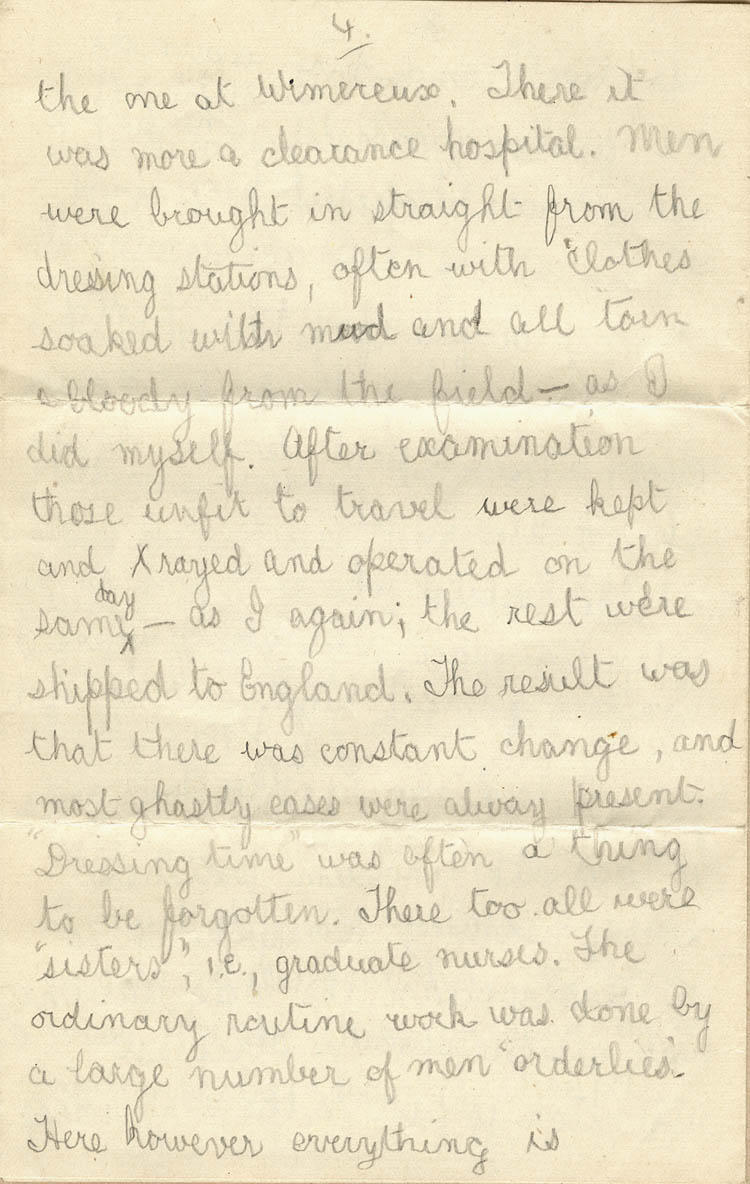 4.
the one at Wimereux. There it
was more a clearance hospital. Men
were brought in straight from the
dressing stations, often with clothes
soaked with mud and all torn
& bloody from the field — as I
did myself. After examination
those unfit to travel were kept
and X rayed and operated on the
day
same — as I again; the rest were
shipped to England. The result was
that there was constant change, and
most ghastly cases were alway present.
"Dressing time" was often a thing
to be forgotten. There too all were
"sisters", i.e., graduate nurses. The
ordinary routine work was done by
a large number of men "orderlies".
Here however everything is